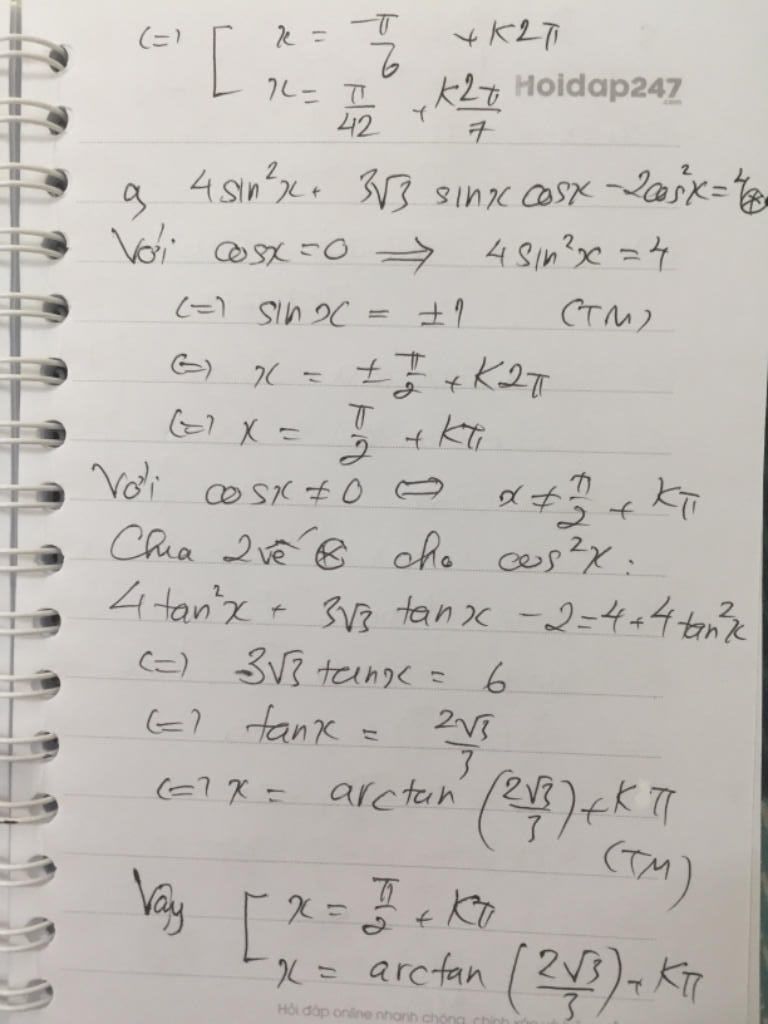 (=) [ x = -π/6 + k2π
x = π/42 + k2π/7
Hoidap247
.com
g, 4sin²x + 3√3 sinx cosx - 2cos²x = 4 ⊛
Với cosx = 0 ⟹ 4sin²x = 4
(=) sinx = ±1 (TM)
(=) x = ±π/2 + k2π
(=) x = π/2 + kπ
Với cosx ≠ 0 ⟺ x ≠ π/2 + kπ
Chia 2 vế ⊛ cho cos²x :
4tan²x + 3√3 tanx - 2 = 4 + 4tan²x
(=) 3√3 tanx = 6
(=) tanx = 2√3/3
(=) x = arctan (2√3/3) + kπ
(TM)
Vậy [ x = π/2 + kπ
x = arctan (2√3/3) + kπ
Hỏi đáp online nhanh chóng, chính xác